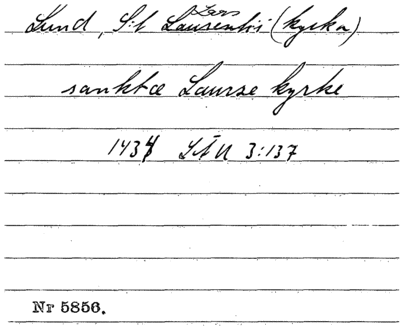 Lund, S:t Laurentii (kyrka)
sanktæ Laurze kyrke
1434 SÅU 3:137
Nr 5856.